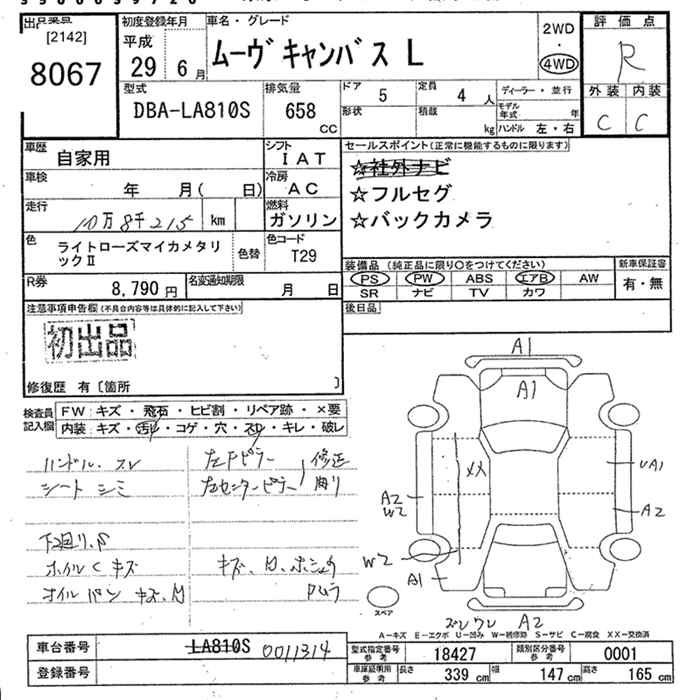 [2142]
8067
初度登録年月
平成
29年 6月
車名・グレード
ムーヴキャンバス L
2WD
・
4WD
評価点
R
外装 内装
C C
型式
DBA-LA810S
排気量
658 CC
ドア
5
定員
4 人
形状
積載
kg
ディーラー・並行
モデル年式 年
ハンドル 左・右
車歴
自家用
シフト
IAT
車検
年 月( 日)
冷房
AC
走行
10万8千215 km
燃料
ガソリン
色
ライトローズマイカメタリックⅡ
色替
色コード
T29
R券
8,790円
名変通知期限
月 日
セールスポイント(正常に機能するものに限ります)
☆社外ナビ
☆フルセグ
☆バックカメラ
装備品 (純正品に限り○をつけてください)
PS PW ABS エアB AW
SR ナビ TV カワ
新車保証書
有・無
後日品
注意事項申告欄(不具合内容等は具体的に記入して下さい)
初出品
修復歴 有〔箇所 〕
検査員記入欄
FW:キズ・飛石・ヒビ割・リペア跡・×要
内装:キズ・汚れ・コゲ・穴・スレ・キレ・破レ
ハンドル.スレ
シート シミ
左Fピラー
左センターピラー
修正
有り
下廻り.S
ホイルC キズ
オイルパン キズ、凹
A1
A1
XX
UA1
A2
W2
A2
W2
A1
A2
スペア
A-キズ E-エクボ U-凹み W-補修跡 S-サビ C-腐食 XX-交換済
車台番号
LA810S 0011314
登録番号
型式指定番号 参考
18427
類別区分番号 参考
0001
車庫証明用 参考
長さ 339cm 幅 147cm 高さ 165cm